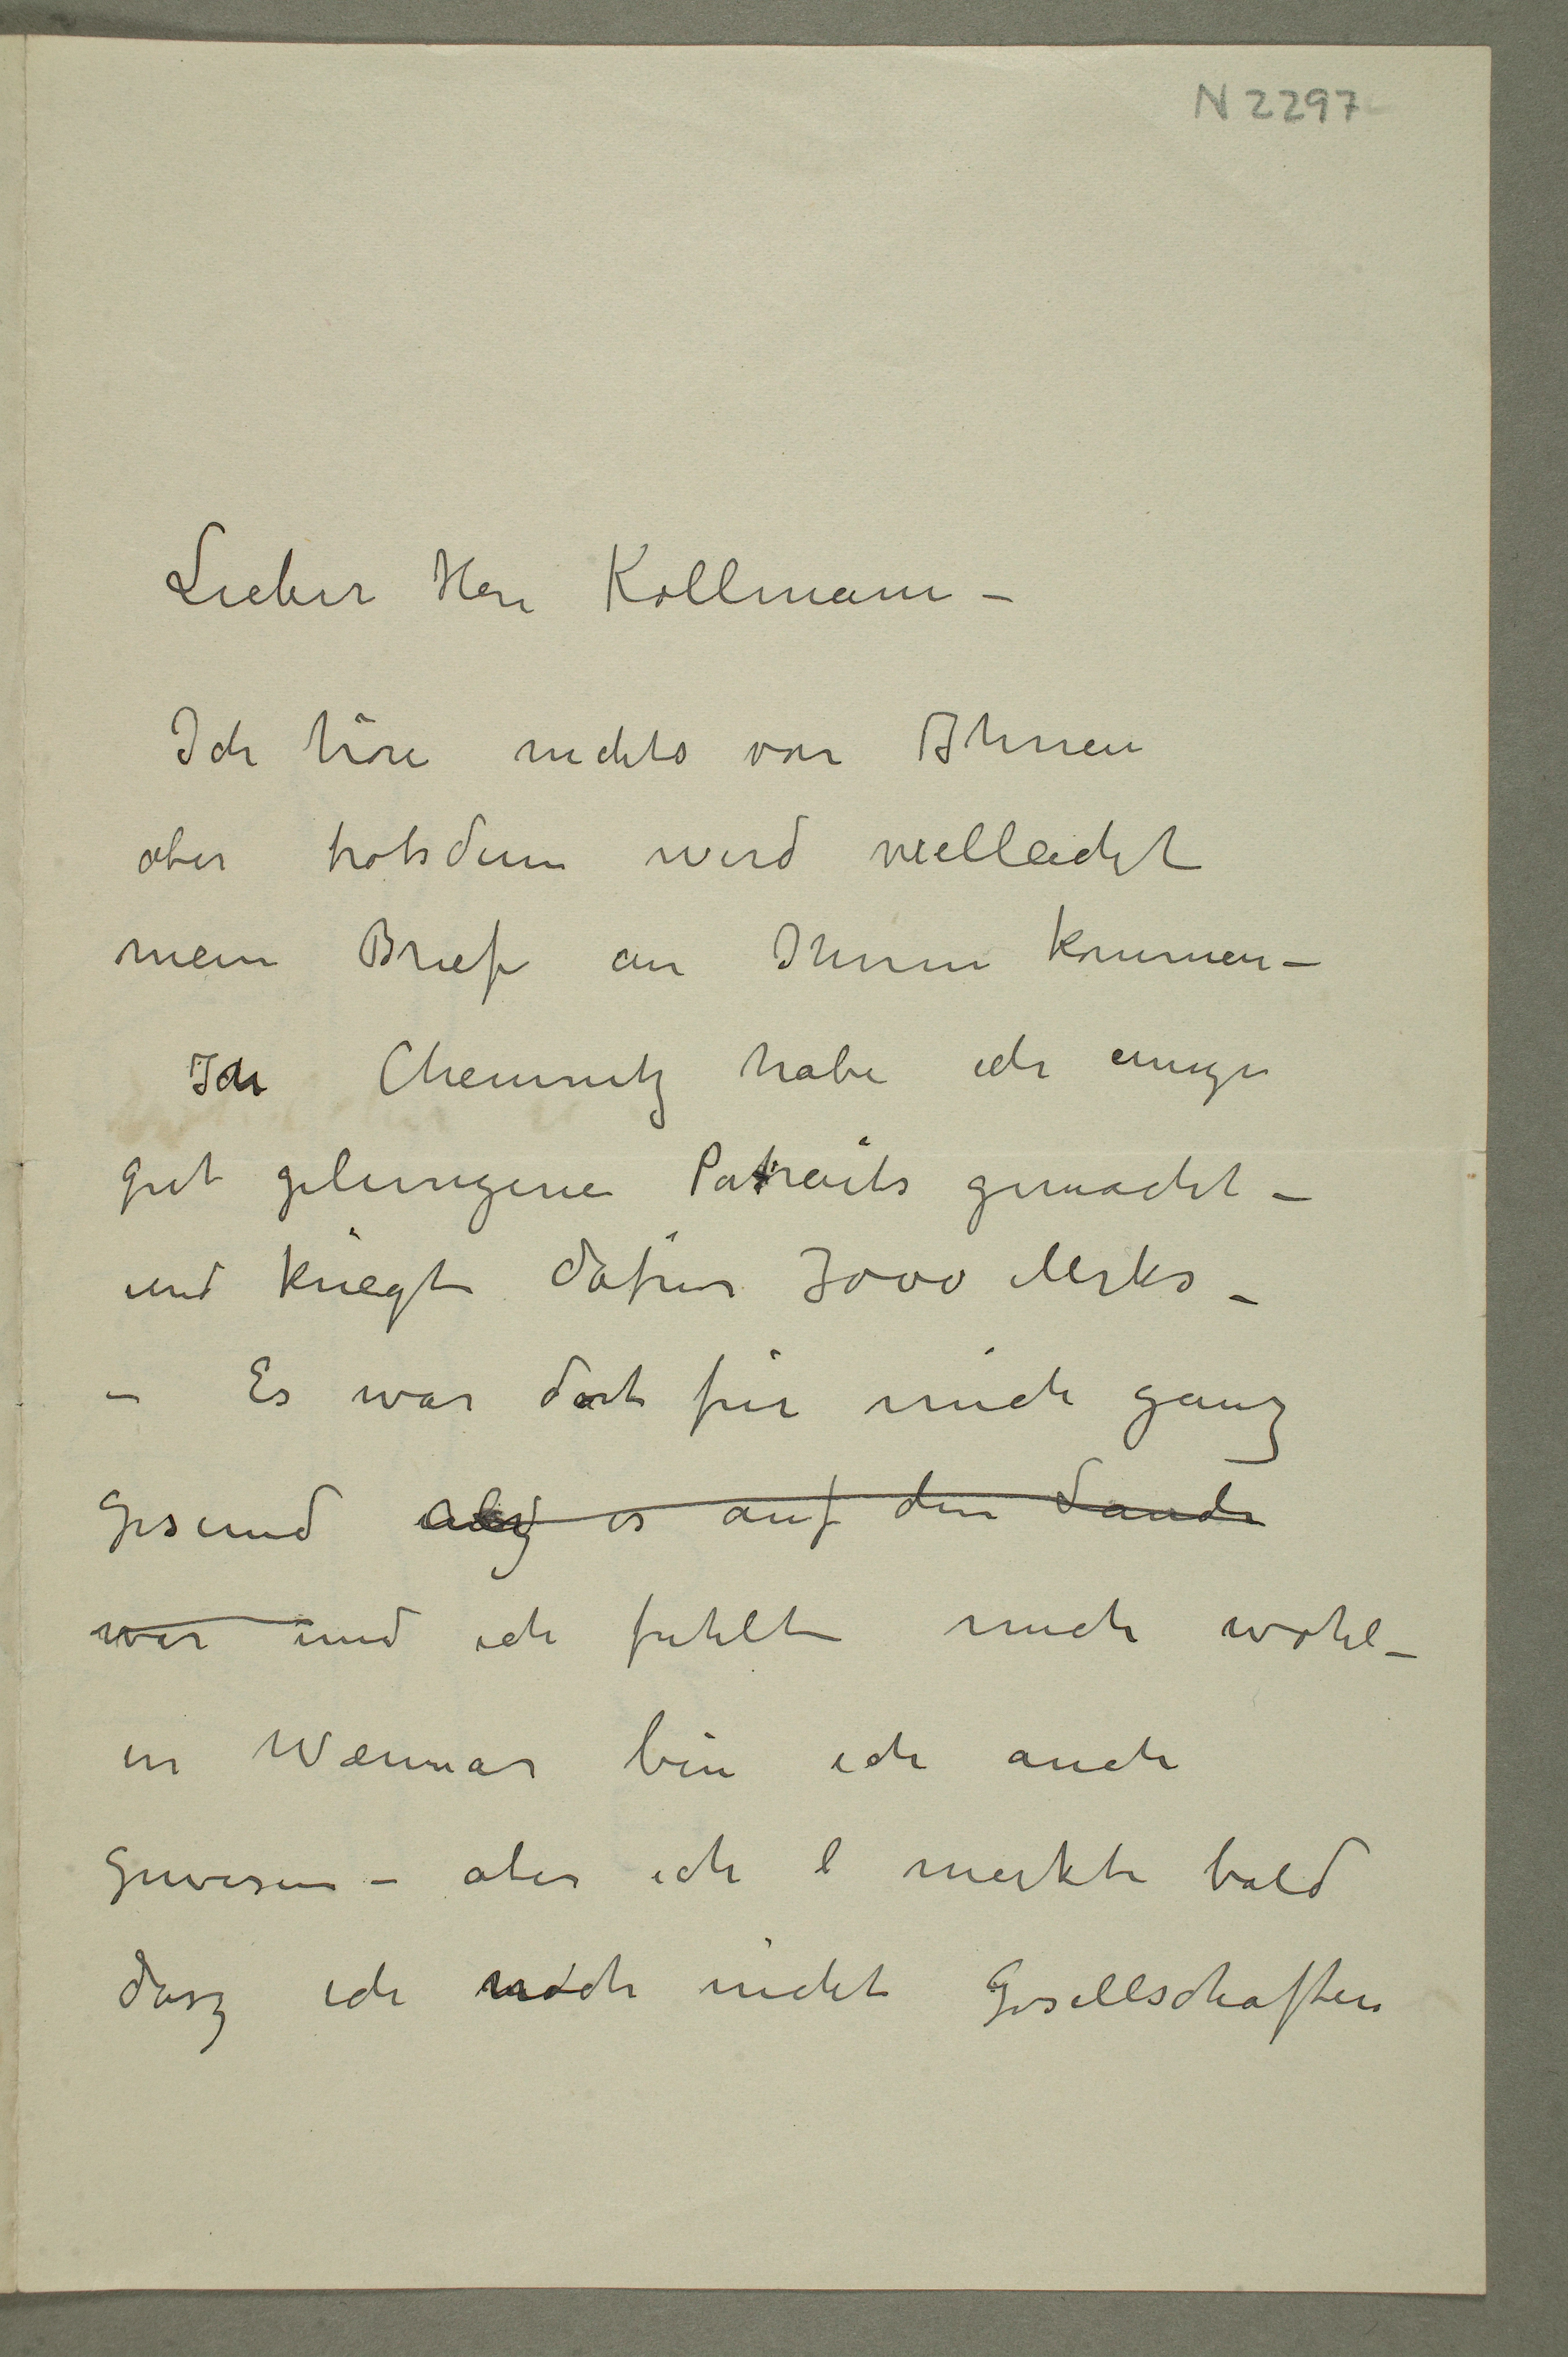 N 2297
Lieber Herr Kollmann –
Ich höre nichts von Ihnen
aber trotsdem wird vielleicht
mein Brief an Ihnen kommen –
Ich Chemnitz habe ich einige
gut gelungene Potraits gemacht –
und kriegte dafür 7000 Mrks –
– Es war dort für mich ganz
gesund es auf dem Lande
war und ich fuhlte mich wohl –
in Weimar bin ich auch
gewesen – aber ich l merkte bald
dasz ich noch nicht Gesellschaften